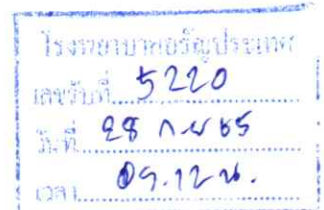 โรงพยาบาลอรัญประเทศ
เลขรับที่ 5220
วันที่ 28 ก.ย 65
เวลา 09.12 น.